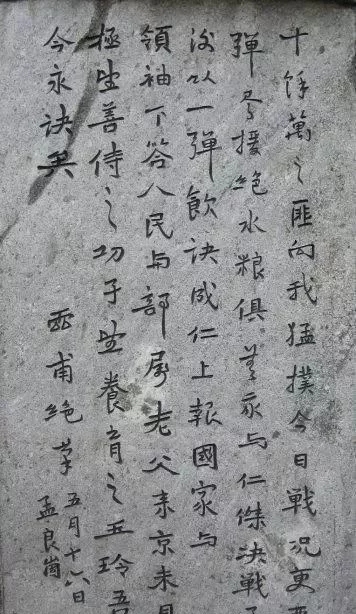 十餘萬之匪向我猛撲今日戰况更
彈尽援絶水粮俱無我与仁傑决戰
後以一彈飲訣成仁上報國家与
領袖下答人民与部屬老父来京未見
極望善侍之幼子望養育之玉玲吾
今永诀矣
灵甫絶筆
五月十六日
孟良崮